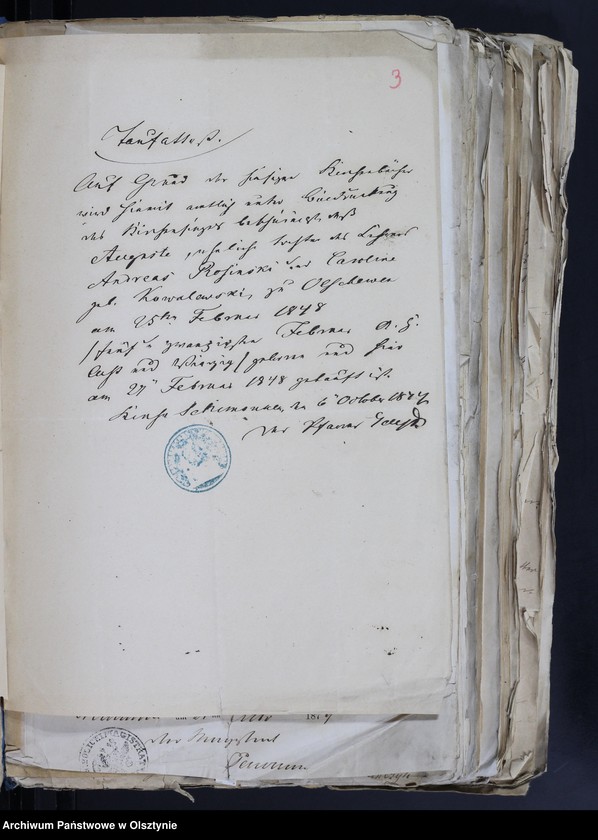 3
Taufattest.
Auf Grund der hiesigen Kirchenbücher
wird hiermit amtlich unter Beidrückung
des Kirchensiegels bescheinigt, daß
Auguste, eheliche Tochter des Lehrers
Andreas Rosinski und Caroline
geb. Kowalewski, zu Olschewen
am 25ten Februar 1848
/fünf u zwanzigsten Februar a. h.
acht und vierzig/ geboren und hier
am 27 Februar 1848 getauft ist.
den 6 October 1874
Der Pfarrer
der Magistrat
Archiwum Państwowe w Olsztynie